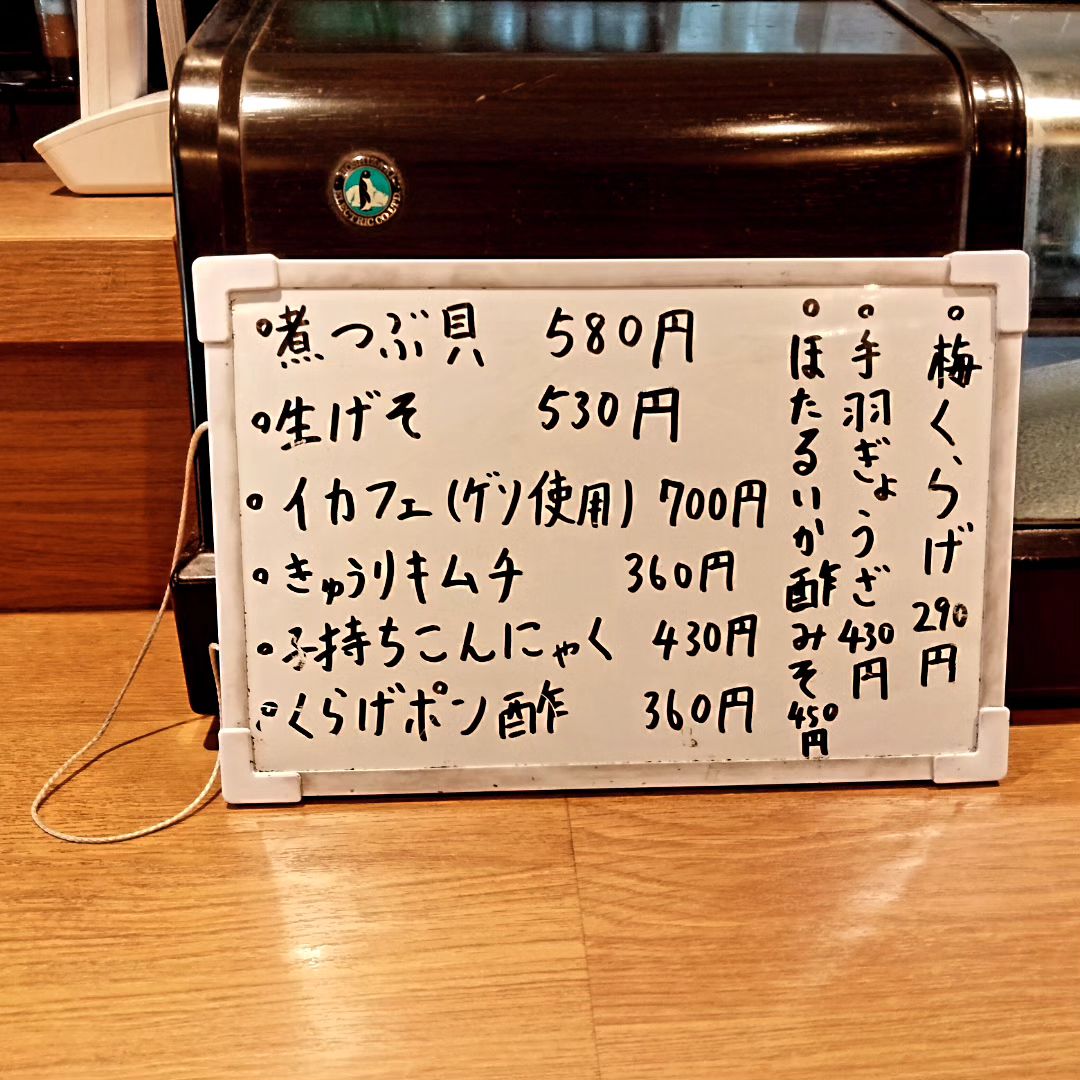 煮つぶ貝 580円
生げそ 530円
イカフェ(ゲソ使用) 700円
きゅうりキムチ 360円
子持ちこんにゃく 430円
くらげポン酢 360円
梅くらげ 290円
手羽ぎょうざ 430円
ほたるいか酢みそ 450円
ELECTRIC CO.LTD.